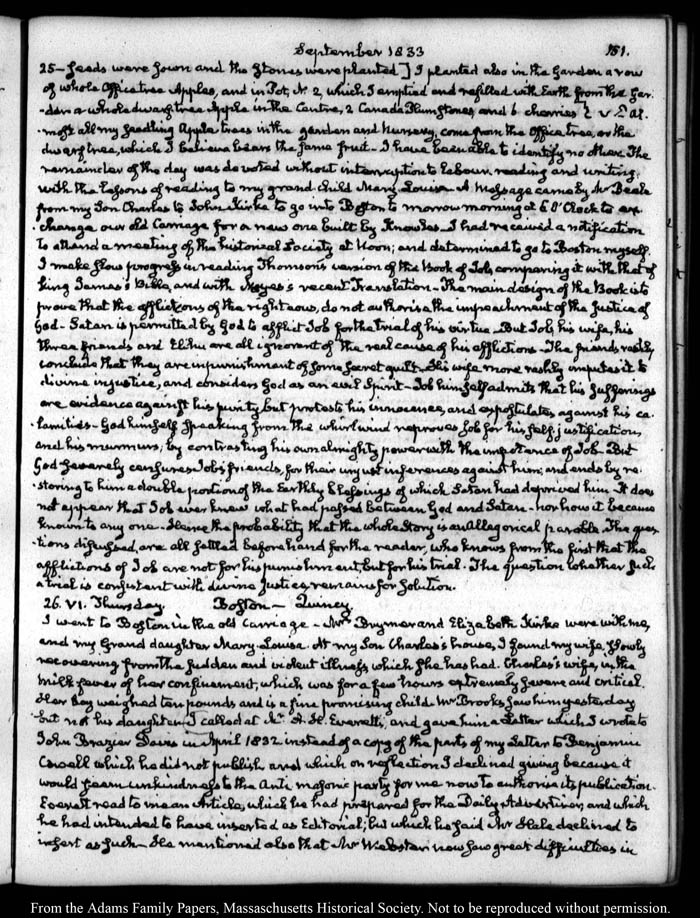 September 1833
151.
25— seeds were sown and the stones were planted] I planted also in the Garden a row
of whole Office tree Apples, and in Pot, N. 2, which I emptied and refilled with Earth from the Gar-
-den a whole dwarf tree Apple in the Centre, 2 Canada Plum stones, and 6 cherries
-most all my seedling Apple trees in the garden and Nursery, come from the Office tree, or the
dwarf tree, which I believe bears the same fruit— I have been able to identify no other. The
remainder of the day was devoted without interruption to labour, reading and writing,
with the lessons of reading to my grand child Mary Louisa. A Message came by Mr Beale
from my Son Charles to John Kirke to go into Boston to morrow morning at 6 O'Clock to ex-
-change our old Carriage for a new one built by Knowles— I had received a notification
to attend a meeting of the historical Society at Noon; and determined to go to Boston myself.
I make slow progress in reading Thomson's version of the Book of Job, comparing it with that of
King James's Bible, and with Noyes's recent Translation— The main design of the Book is to
prove that the afflictions of the righteous, do not authorise the impeachment of the Justice of
God— Satan is permitted by God to afflict Job for the trial of his virtue— But Job, his wife, his
three friends and Elihu are all ignorant of the real cause of his afflictions— The friends rashly
conclude that they are in punishment of some secret guilt. His wife more rashly imputes it to
divine injustice, and considers God as an evil Spirit— Job himself admits that his sufferings
are evidence against his purity but protests his innocence, and expostulates against his ca-
-lamities— God himself speaking from the whirlwind reproves Job for his self-justification,
and his murmurs, by contrasting his own almighty power with the impotence of Job. But
God severely censures Job's friends, for their unjust inferences against him; and ends by re-
-storing to him a double portion of the Earthly blessings of which Satan had deprived him— It does
not appear that Job ever knew what had passed between God and Satan— nor how it became
known to any one— Hence the probability that the whole Story is an Allegorical parable. The ques-
-tions discussed, are all settled beforehand for the reader, who knows from the first that the
afflictions of Job are not for his punishment, but for his trial. The question whether such
a trial is consistent with divine Justice, remains for solution.
26. VI. Thursday. Boston— Quincy.
I went to Boston in the old Carriage— Mrs Brymer and Elizabeth Kirke were with me,
and my Grand daughter Mary-Louisa. At my Son Charles's house, I found my wife, slowly
recovering from the sudden and violent illness which she has had. Charles's wife, in the
milk fever of her confinement, which was for a few hours extremely severe and critical.
Her boy weighed ten pounds and is a fine promising child. Mr Brooks saw him yesterday
but not his daughter. I called at Mr A. H. Everett's, and gave him a Letter which I wrote to
John Brazier Davis in April 1832 instead of a copy of the parts of my Letter to Benjamin
Cowell which he did not publish and which on reflection I declined giving because it
would seem unkindness to the Anti masonic party for me now to authorise its publication.
Everett read to me an Article, which he had prepared for the Daily Advertiser, and which
he had intended to have inserted as Editorial; but which he said Mr Hale declined to
insert as such— He mentioned also that Mr Webster now saw great difficulties in
From the Adams Family Papers, Massachusetts Historical Society. Not to be reproduced without permission.